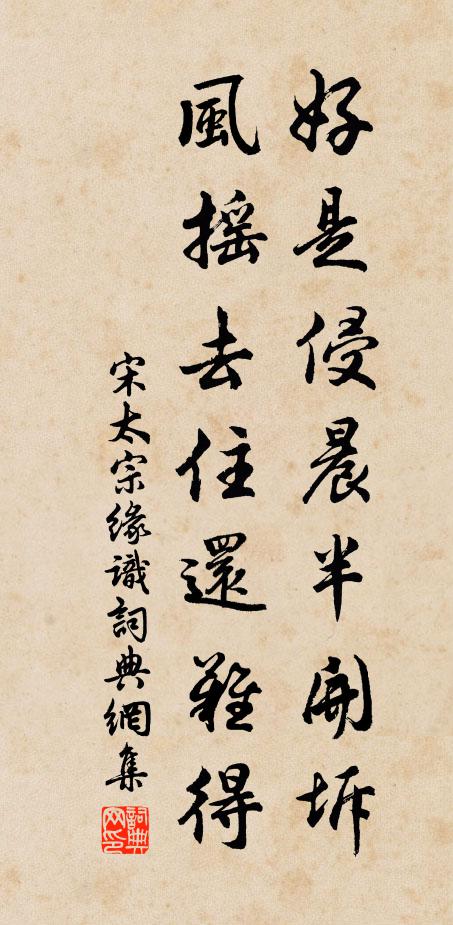 好是侵晨半開坼
風搖去住還難得
宋太宗緣識詞典網集
詞典网印